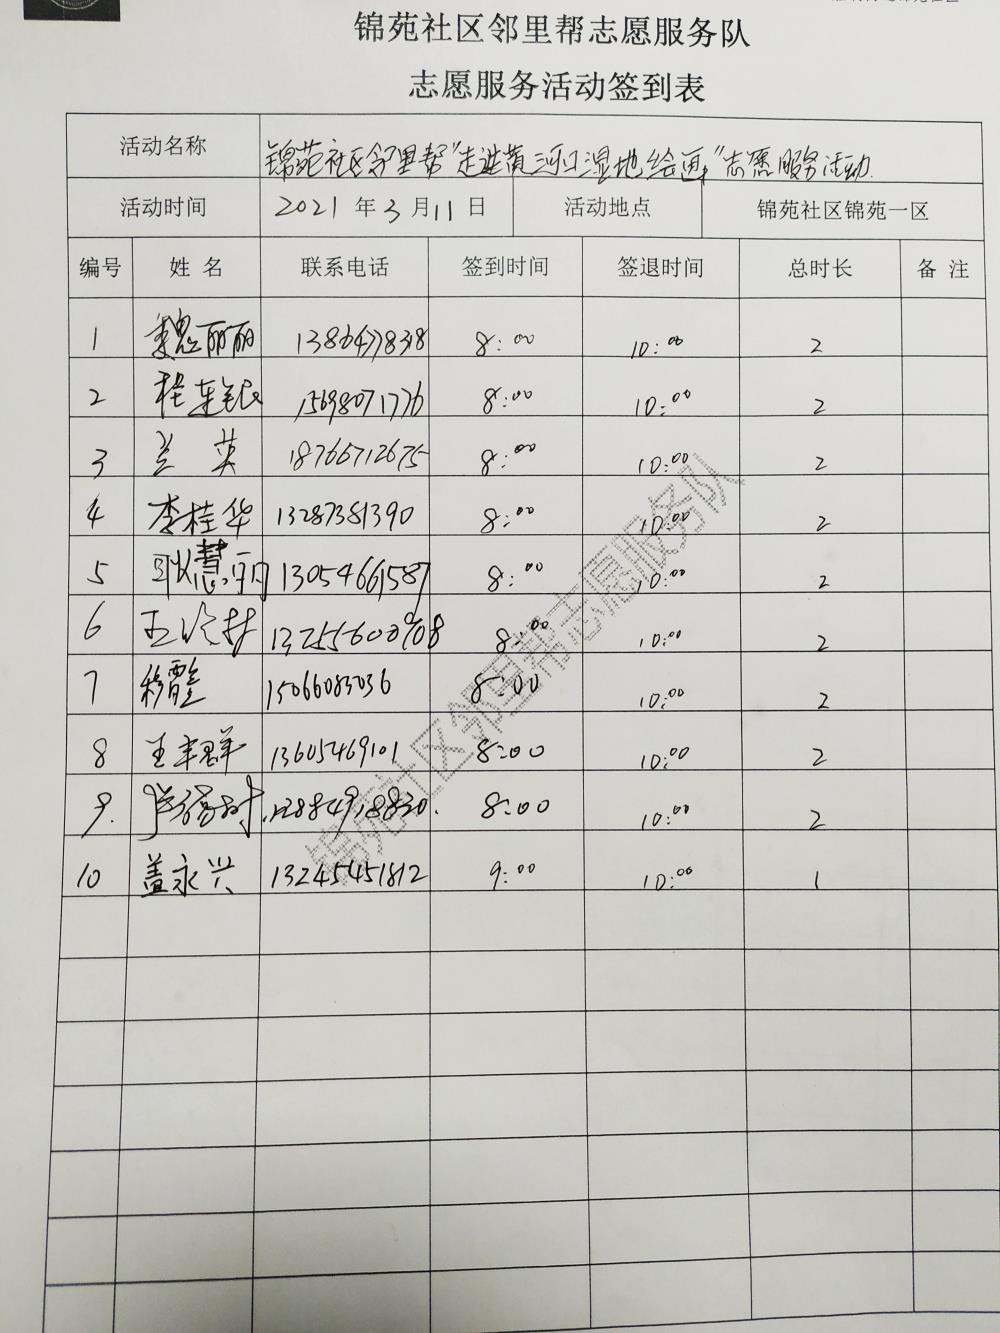 锦苑社区邻里帮志愿服务队
志愿服务活动签到表
活动名称 锦苑社区邻里帮"走进黄河口湿地绘画"志愿服务活动.
活动时间 2021 年 3 月 11 日 活动地点 锦苑社区锦苑一区
编号 姓 名 联系电话 签到时间 签退时间 总时长 备 注
1 魏丽丽 13864778318 8:00 10:00 2
2 15698071776 8:00 10:00 2
3 兰 英 18766712675 8:00 10:00 2
4 李桂华 13287381390 8:00 10:00 2
5 耿慧丽 13054661587 8:00 10:00 2
6 8:00 10:00 2
7 穆霞 15066083036 8:00 10:00 2
8 13605469101 8:00 10:00 2
9. 8:00 10:00 2
10 盖永兴 13245451812 9:00 10:00 1
锦苑社区邻里帮志愿服务队